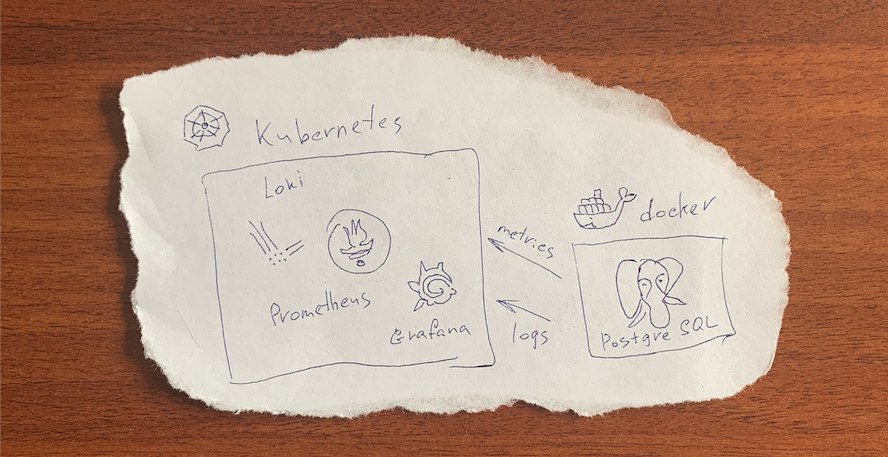 Kubernetes
Loki
Prometheus
Grafana
metrics
logs
docker
PostgreSQL